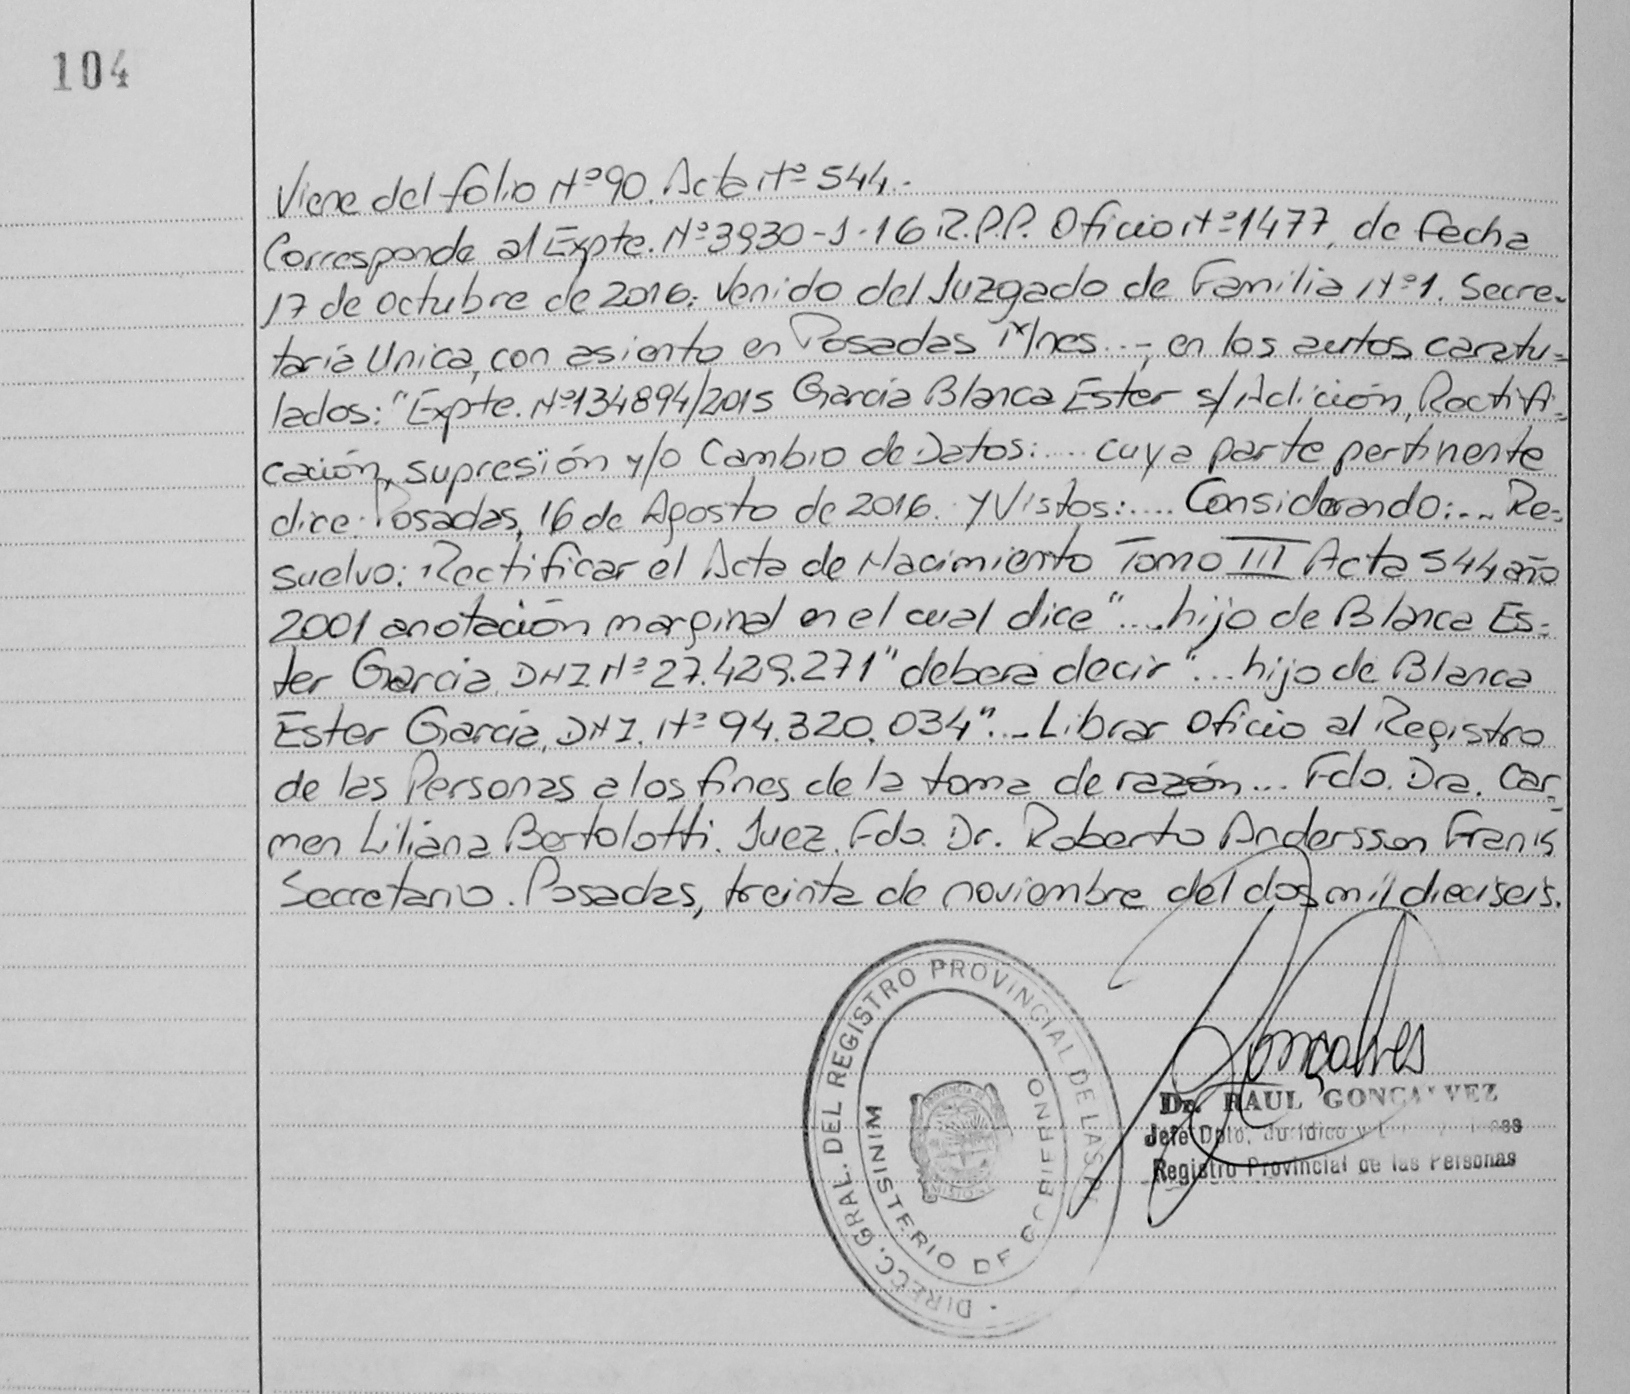 104
Viene del folio Nº 90. Acta Nº 544.-
Corresponde al Expte. Nº 3930-J-16 R.P.P. Oficio Nº 1477, de fecha
17 de octubre de 2016. Venido del Juzgado de Familia Nº 1. Secre-
taría Unica, con asiento en Posadas Mnes...-, en los autos caratu-
lados: "Expte. Nº 134894/2015 García Blanca Ester s/ Adición, Rectifi-
cación, supresión y/o Cambio de Datos:.... cuya parte pertinente
dice: Posadas, 16 de Agosto de 2016. Y Vistos:.... Considerando:... Re-
suelvo: Rectificar el Acta de Nacimiento Tomo III Acta 544 año
2001 anotación marginal en el cual dice "....hijo de Blanca Es-
ter García DNI Nº 27.429.271" deberá decir "...hijo de Blanca
Ester García, DNI. Nº 94.320.034"... Librar Oficio al Registro
de las Personas a los fines de la toma de razón... Fdo. Dra. Car-
men Liliana Bertolotti. Juez. Fdo. Dr. Roberto Andersson Frenis
Secretario. Posadas, treinta de noviembre del dos mil dieciseis.
DIRECC. GRAL. DEL REGISTRO PROVINCIAL DE LAS
MINISTERIO DE GOBIERNO
Gonçalves
Dr. RAUL GONCALVEZ
Jefe Dpto. Jurídico y
Registro Provincial de las Personas